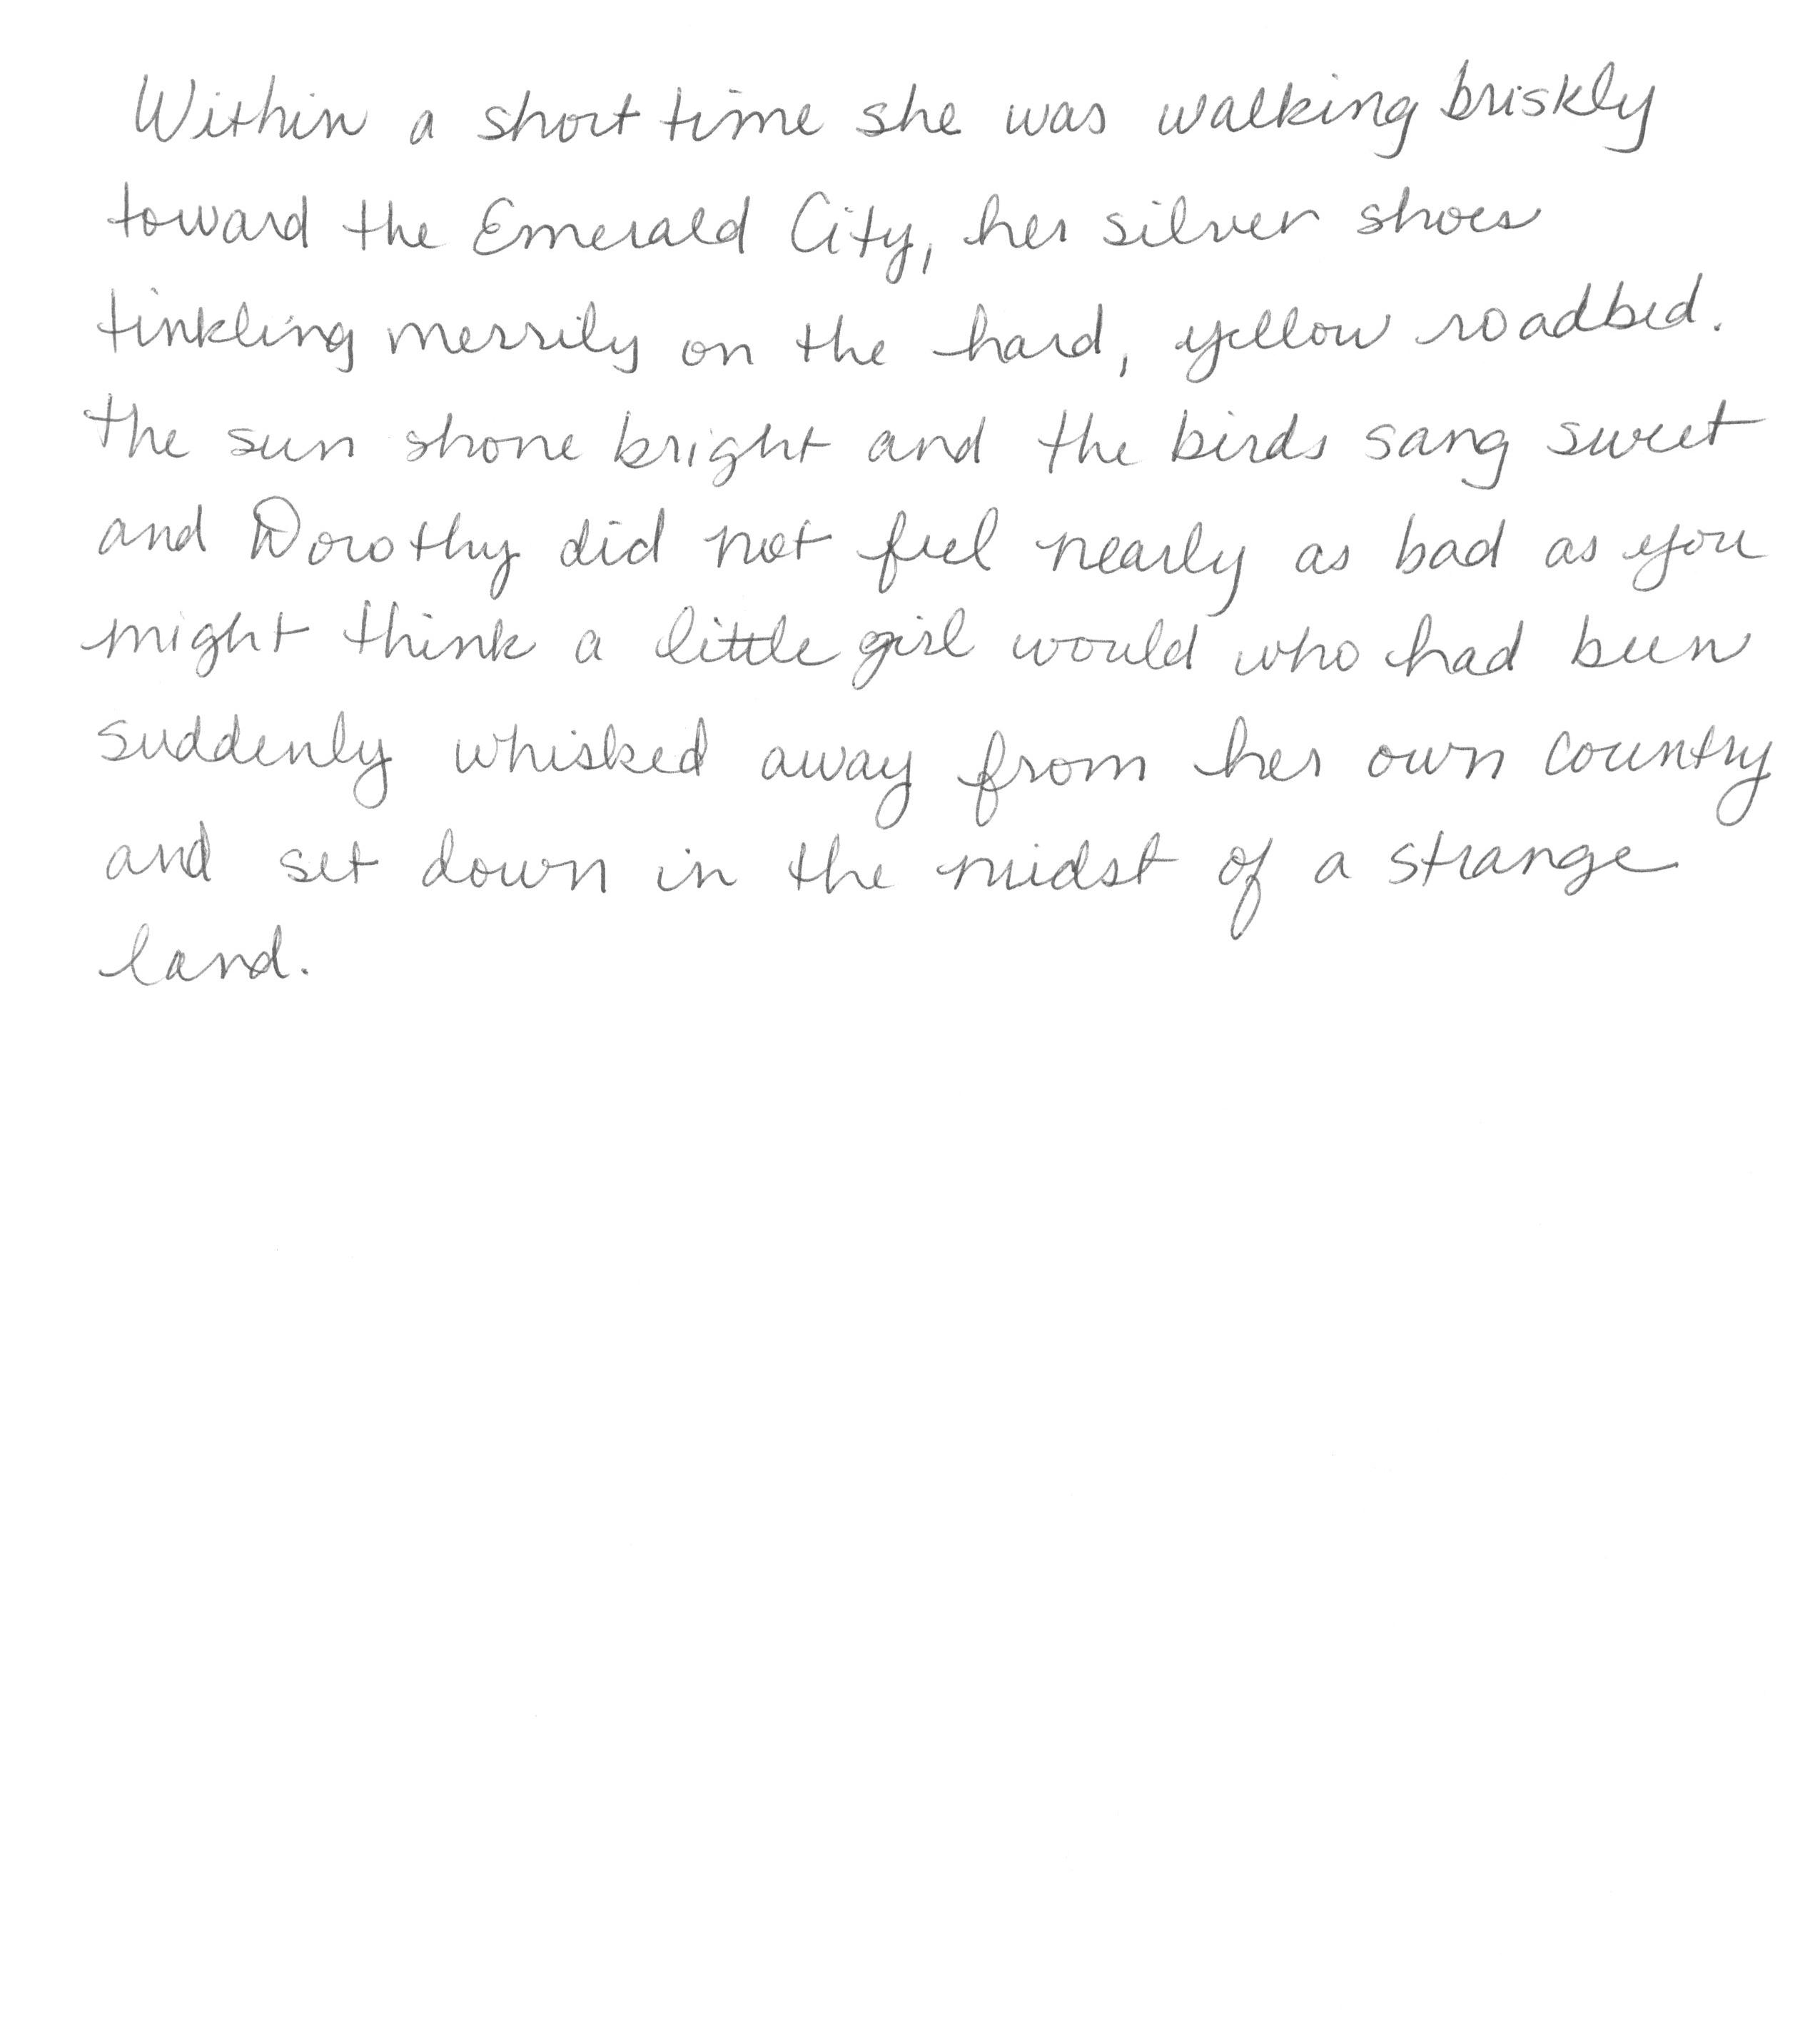 Within a short time she was walking briskly
toward the Emerald City, her silver shoes
tinkling merrily on the hard, yellow roadbed.
The sun shone bright and the birds sang sweet
and Dorothy did not feel nearly as bad as you
might think a little girl would who had been
suddenly whisked away from her own country
and set down in the midst of a strange
land.